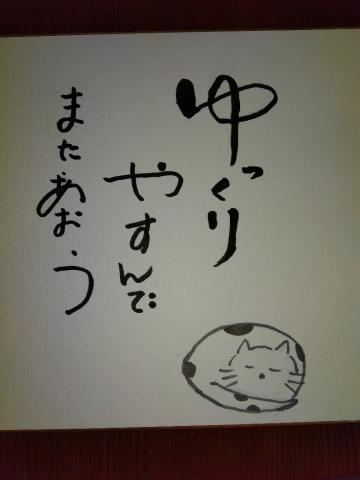 ゆっくり
やすんで
またあおう